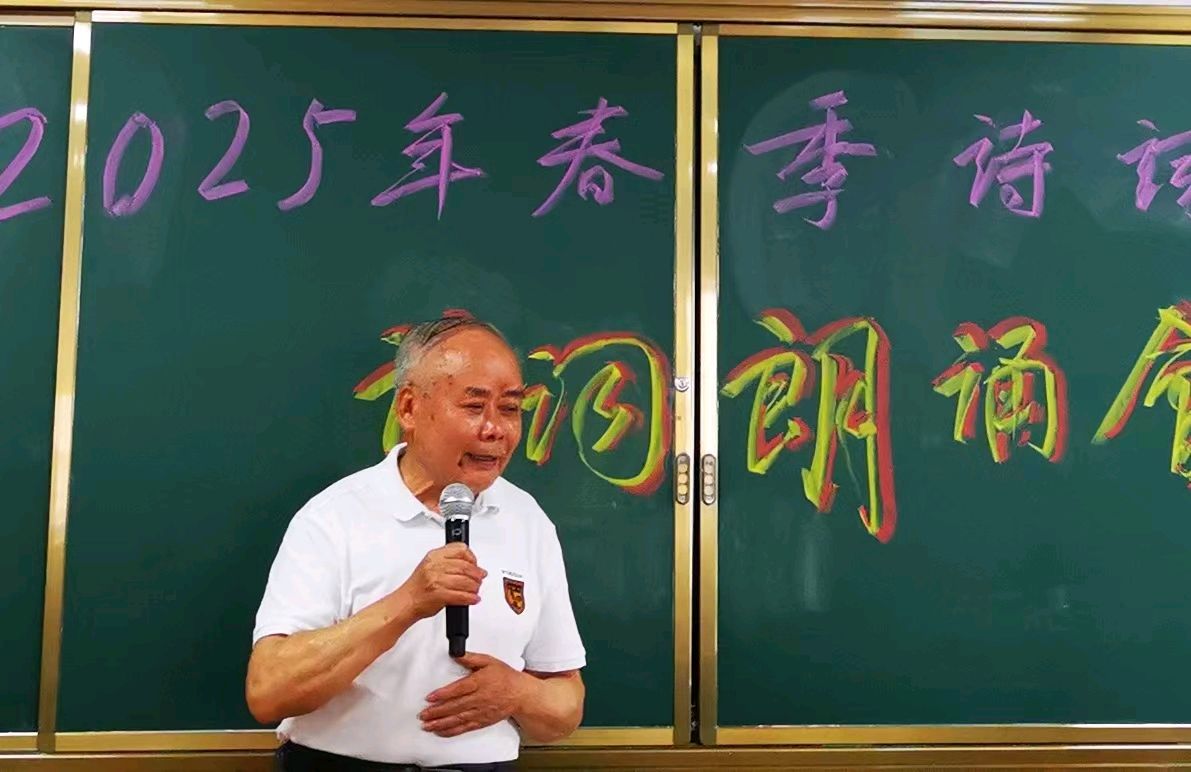 2025年春季诗词
词朗诵会